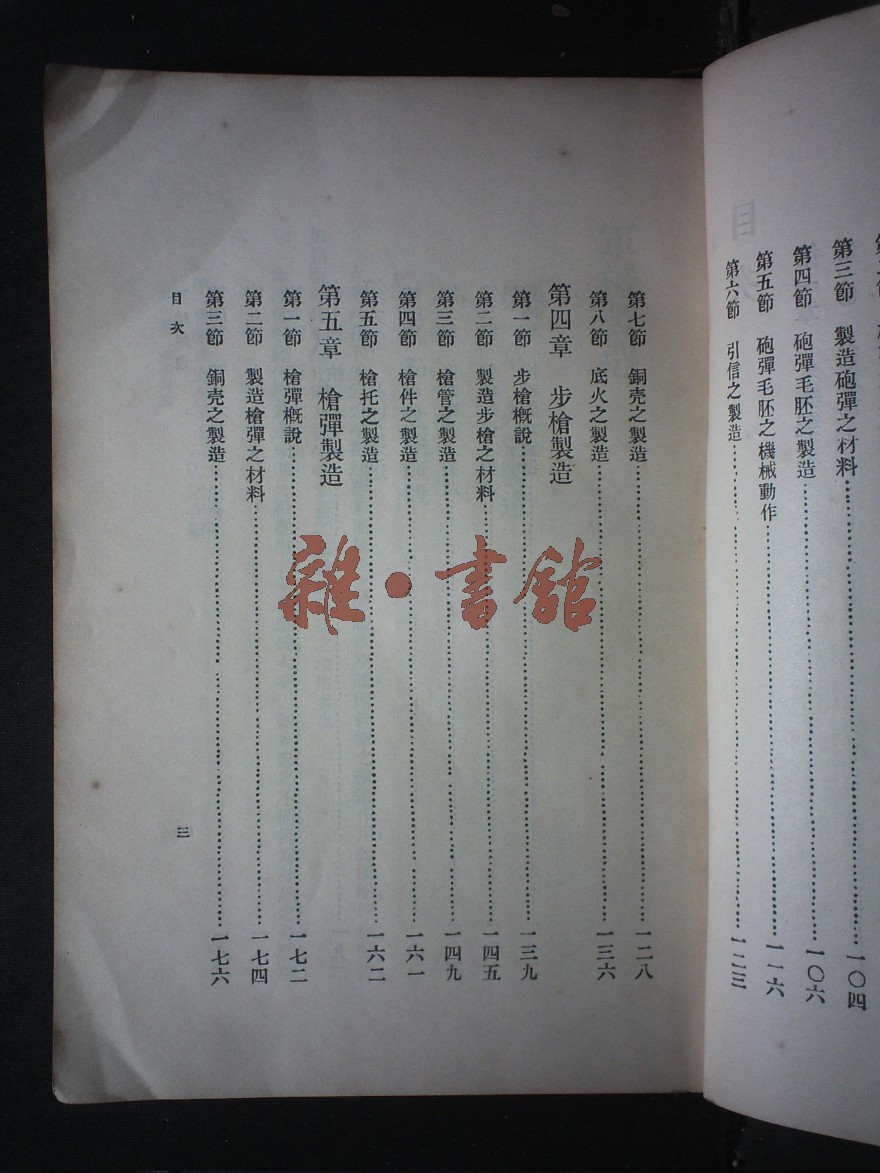 第三節　製造砲彈之材料……一〇四
第四節　砲彈毛胚之製造……一〇六
第五節　砲彈毛胚之機械動作……一一六
第六節　引信之製造……一二三
第七節　銅壳之製造……一二八
第八節　底火之製造……一三六
第四章　步槍製造
第一節　步槍概說……一三九
第二節　製造步槍之材料……一四五
第三節　槍管之製造……一四九
第四節　槍件之製造……一六一
第五節　槍托之製造……一六二
第五章　槍彈製造
第一節　槍彈概說……一七二
第二節　製造槍彈之材料……一七四
第三節　銅壳之製造……一七六
目次
三
雜·書館